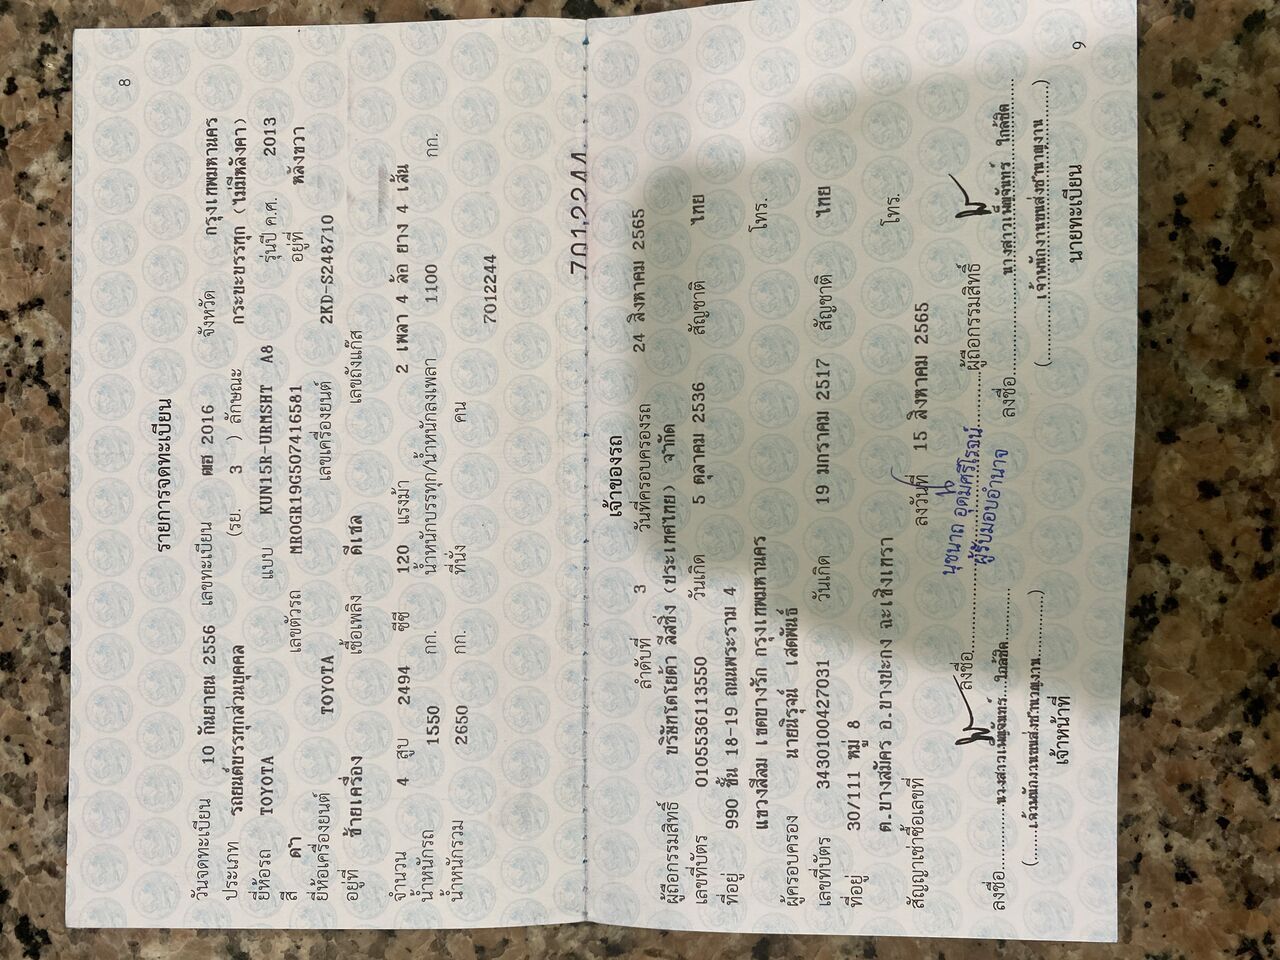 8
รายการจดทะเบียน
วันจดทะเบียน 10 กันยายน 2556 เลขทะเบียน ฒฮ 2016 จังหวัด กรุงเทพมหานคร
ประเภท รถยนต์บรรทุกส่วนบุคคล (รย. 3 ) ลักษณะ กระบะบรรทุก (ไม่มีหลังคา)
ยี่ห้อรถ TOYOTA แบบ KUN15R-URMSHT A8 รุ่นปี ค.ศ. 2013
สี ดำ เลขตัวรถ MR0GR19G507416581 อยู่ที่ หลังขวา
ยี่ห้อเครื่องยนต์ TOYOTA เลขเครื่องยนต์ 2KD-S248710
อยู่ที่ ซ้ายเครื่อง เชื้อเพลิง ดีเซล เลขถังแก๊ส
จำนวน 4 สูบ 2494 ซีซี 120 แรงม้า 2 เพลา 4 ล้อ ยาง 4 เส้น
น้ำหนักรถ 1550 กก. น้ำหนักบรรทุก/น้ำหนักลงเพลา 1100 กก.
น้ำหนักรวม 2650 กก. ที่นั่ง คน
7012244
7012244
เจ้าของรถ
ลำดับที่ 3 วันที่ครอบครองรถ 24 สิงหาคม 2565
ผู้ถือกรรมสิทธิ์ บริษัทโตโยต้า ลีสซิ่ง (ประเทศไทย) จำกัด
เลขที่บัตร 0105536113550 วันเกิด 5 ตุลาคม 2536 สัญชาติ ไทย
ที่อยู่ 990 ชั้น 18-19 ถนนพระราม 4
แขวงสีลม เขตบางรัก กรุงเทพมหานคร โทร.
ผู้ครอบครอง นายนิรุจน์ เสตพันธ์
เลขที่บัตร 3430100427031 วันเกิด 19 มกราคม 2517 สัญชาติ ไทย
ที่อยู่ 30/111 หมู่ 8
ต.บางสมัคร อ.บางปะกง ฉะเชิงเทรา โทร.
สัญญาเช่าซื้อเลขที่ ลงวันที่ 15 สิงหาคม 2565
ลงชื่อ นุชนาถ อุดมศรีโรจน์ ผู้ถือกรรมสิทธิ์
ผู้รับมอบอำนาจ
ลงชื่อ นางสาวเพ็ญจันทร์ ใกล้ชิด ลงชื่อ นางสาวเพ็ญจันทร์ ใกล้ชิด
(เจ้าพนักงานขนส่งชำนาญงาน) (เจ้าพนักงานขนส่งชำนาญงาน)
เจ้าหน้าที่ นายทะเบียน
9